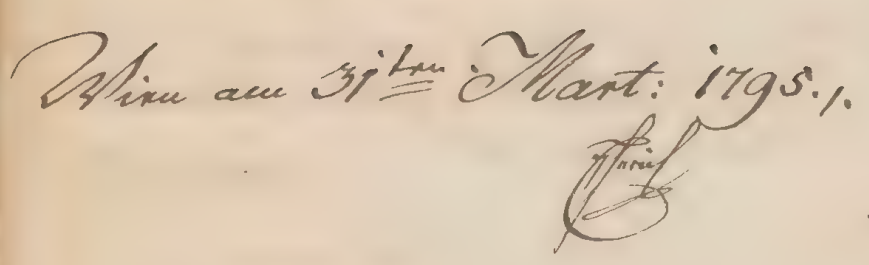 Wien am 31ten Mart: 1795./.